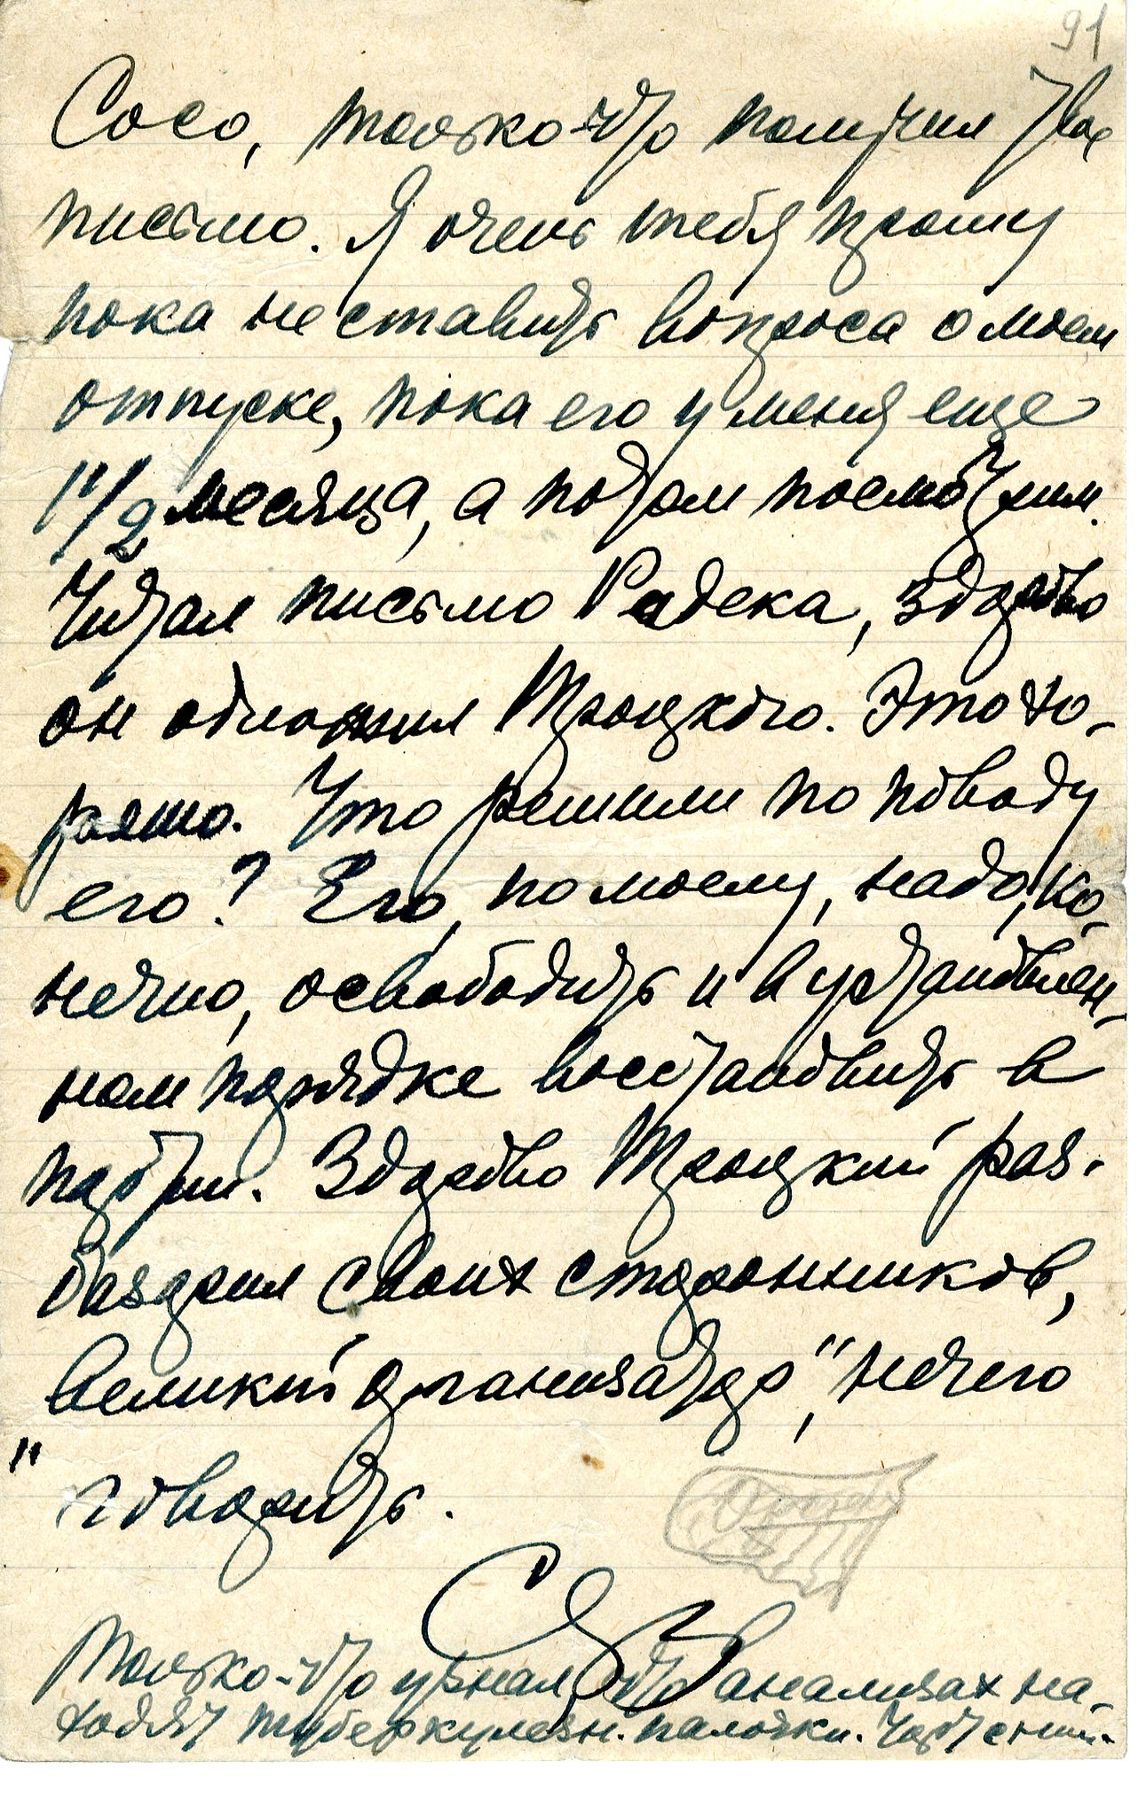 91
Сосо, только-что получил твое
письмо. Я очень тебя прошу
пока не ставить вопроса о моем
отпуске, пока его у меня еще
1 1/2 месяца, а потом посмотрим.
Читал письмо Радека, здорово
он обложил Троцкого. Это хо-
рошо. Что решили по поводу
его? Его, по моему, надо, ко-
нечно, освободить и в установлен-
ном порядке восстановить в
партии. Здорово Троцкий раз-
базарил своих сторонников,
"великий организатор", нечего
говорить.
Только-что узнал, что в анализах на-
ходят туберкулезн. палочки. Чорт с ним.